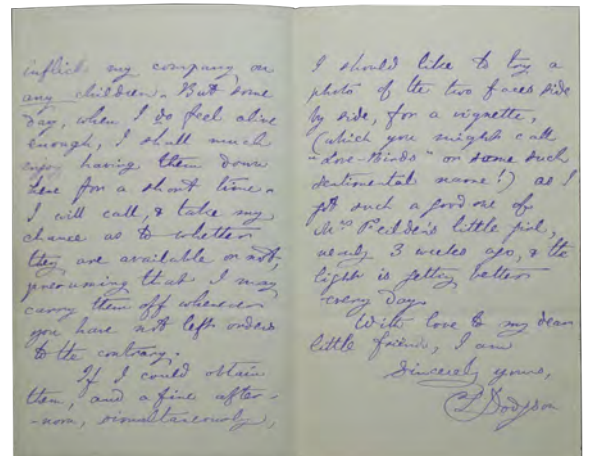 inflict my company on
any children. But some
day, when I do feel alive
enough, I shall much
enjoy having them down
here for a short time.
I will call, & take my
chance as to whether
they are available or not,
presuming that I may
carry them off whenever
you have not left orders
to the contrary.
If I could obtain
them, and a fine after-
-noon, simultaneously,
I should like to try a
photo of the two faces side
by side, for a vignette,
(which you might call
"Love-Birds" or some such
sentimental name!) as I
got such a good one of
Mrs Feilden's little girl,
nearly 3 weeks ago, & the
light is getting better
every day.
With love to my dear
little friends, I am
Sincerely yours,
CLDodgson